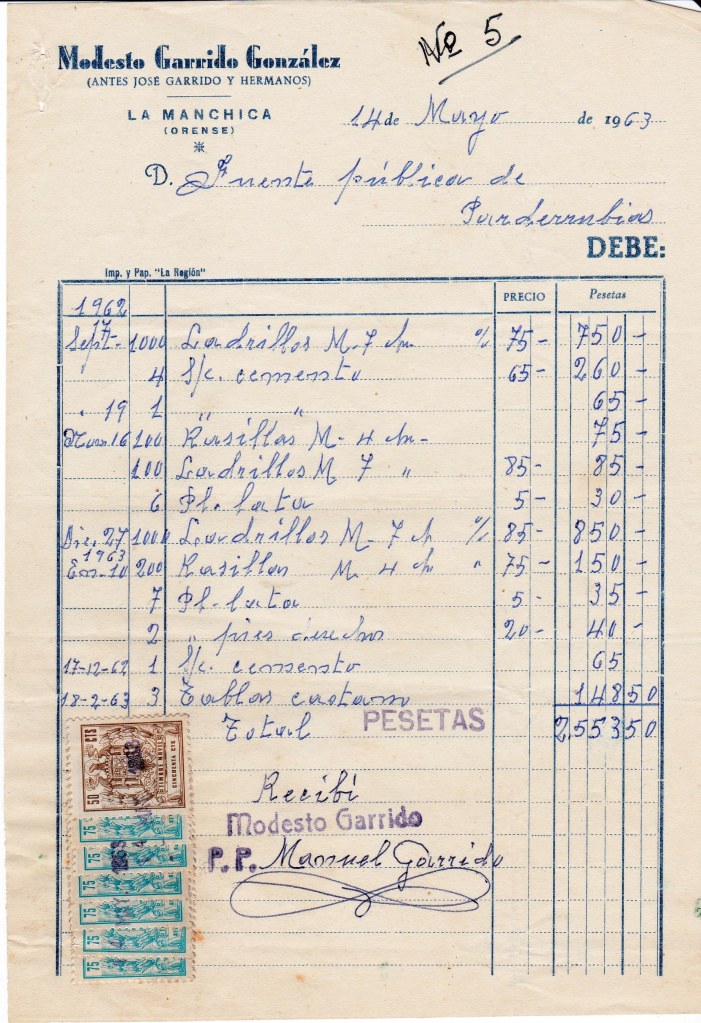 Nº 5
Modesto Garrido González
(ANTES JOSÉ GARRIDO Y HERMANOS)
LA MANCHICA
(ORENSE)
14 de Mayo de 1963
D. Fuente pública de
Parderrubias
DEBE:
Imp. y Pap. "La Región"
PRECIO Pesetas
1962
Sept. 17 1000 Ladrillos M-7 % 75- 750-
4 S/c. cemento 65- 260-
" 19 1 " " 65-
16 100 Rasillas M-4 75-
100 Ladrillos M 7 " 85- 85-
6 Pl. lata 5- 30-
Dic. 27 1000 Ladrillos M-7 % 85- 850-
1963
En. 10 200 Rasillas M. 4 " 75- 150-
7 Pl. lata 5- 35-
2 " pies derechos 20- 40-
17-12-62 1 S/c. cemento 65
18-2-63 3 Tablas castaño 148 50
Total PESETAS 2553 50
50 CTS
TIMBRE MOVIL
CINCUENTA CTS
Recibí
Modesto Garrido
P.P. Manuel Garrido
75
75
75
75
75
75